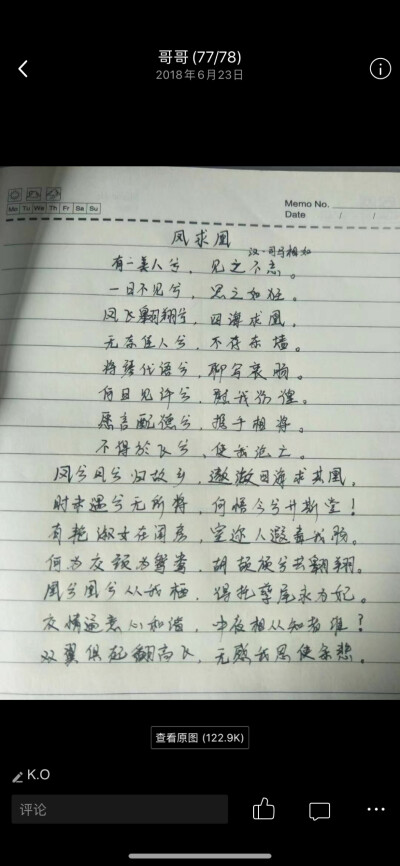 哥哥(77/78)
2018年6月23日
Mo Tu We Th Fr Sa Su
Memo No.
Date / /
凤求凰
汉·司马相如
有一美人兮，见之不忘。
一日不见兮，思之如狂。
凤飞翱翔兮，四海求凰，
无奈佳人兮，不在东墙。
将琴代语兮，聊写衷肠。
何日见许兮，慰我彷徨。
愿言配德兮，携手相将。
不得於飞兮，使我沦亡。
凤兮凤兮归故乡，遨游四海求其凰，
时未遇兮无所将，何悟今兮升斯堂！
有艳淑女在闺房，室迩人遐毒我肠。
何为交颈为鸳鸯，胡颉颃兮共翱翔。
凰兮凰兮从我栖，得托孳尾永为妃。
交情通意心和谐，中夜相从知者谁？
双翼俱起翻高飞，无感我思使余悲。
查看原图 (122.9K)
K.O
评论